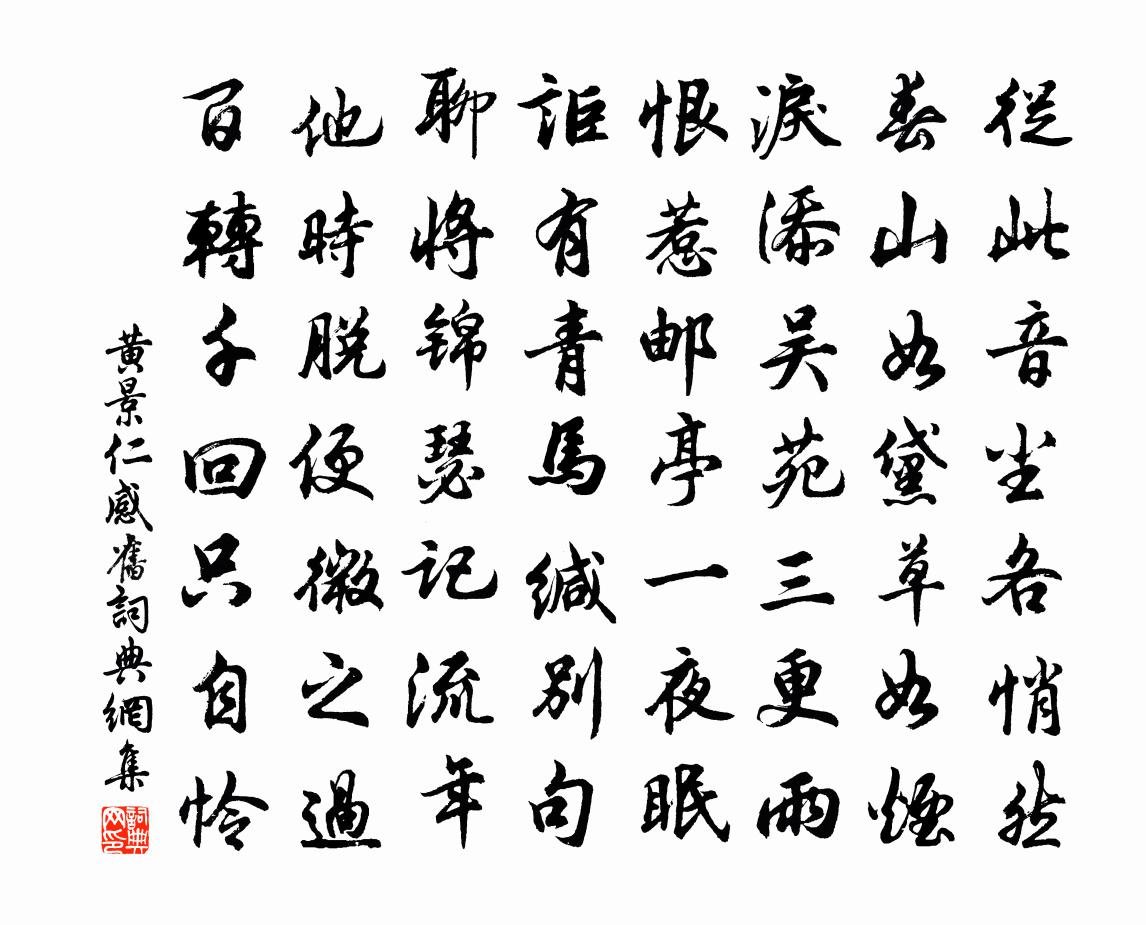 從此音尘各悄然
春山如黛草如煙
淚添吴苑三更雨
恨惹邮亭一夜眠
詎有青馬缄别句
聊將锦瑟記流年
他時脱便微之過
百轉千回只自怜
黄景仁感舊詞典網集
詞典网印